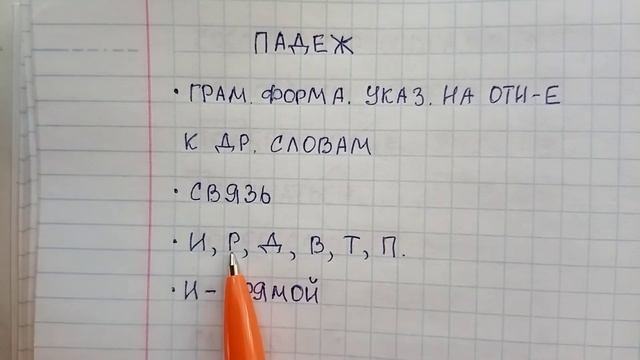 ПАДЕЖ
• ГРАМ. ФОРМА. УКАЗ. НА ОТН-Е
К ДР. СЛОВАМ
• СВЯЗЬ
• И, Р, Д, В, Т, П.
• И - ПРЯМОЙ